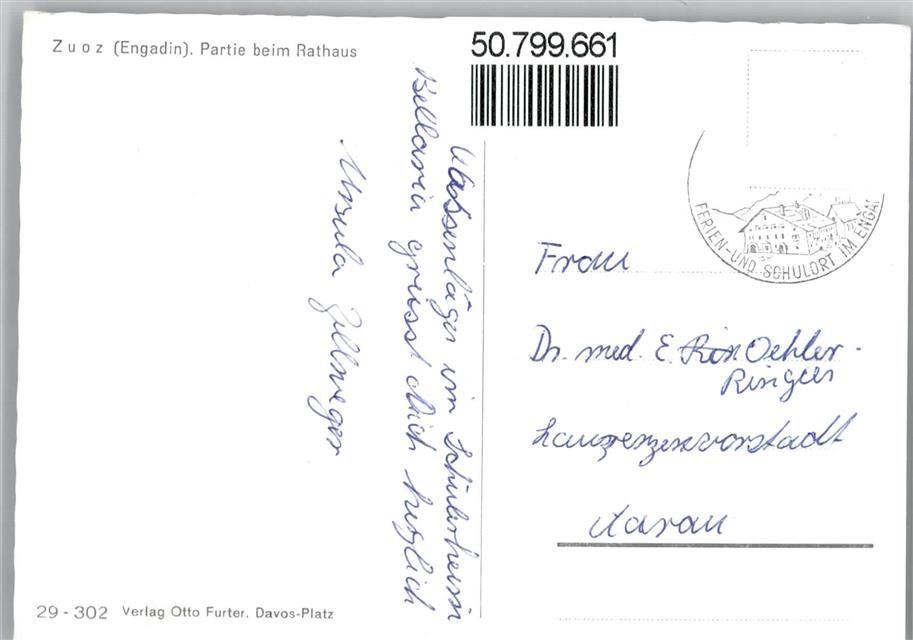 Zuoz (Engadin). Partie beim Rathaus
50.799.661
Klassenlager im Schülerheim
Bellaria grüsst dich herzlich
Ursula Zellweger
FERIEN-UND SCHULORT IM ENGA
Frau
Dr. med. E. Oehler-
Ringier
Laurenzenvorstadt
Aarau
29-302 Verlag Otto Furter. Davos-Platz